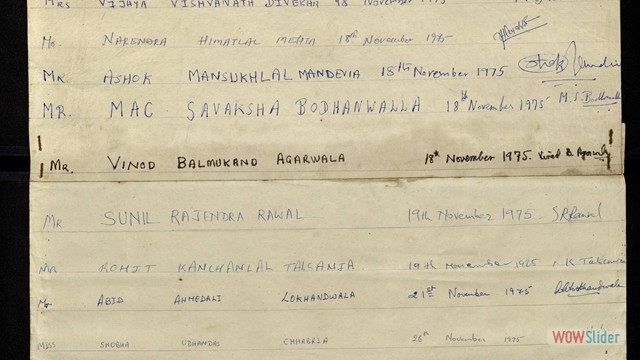 MRS VIJAYA VISHVANATH DIVEKAR 18 November 1975
Mr. NARENDRA HIMATLAL MEHTA 18th November 1975
MR ASHOK MANSUKHLAL MANDEVIA 18th November 1975
MR. MAC SAVAKSHA BODHANWALLA 18th November 1975 M. S. Bodhanwalla
MR. VINOD BALMUKAND AGARWALA 18th November 1975. Vinod B. Agarwala
Mr SUNIL RAJENDRA RAWAL 19th November 1975 SRRawal
MR ROHIT KANCHANLAL TALSANIA 19th November 1975
Mr ABID AHMEDALI LOKHANDWALA 21st November 1975
MISS SHOBHA UDHAMDAS 26th November 1975
WOWSlider